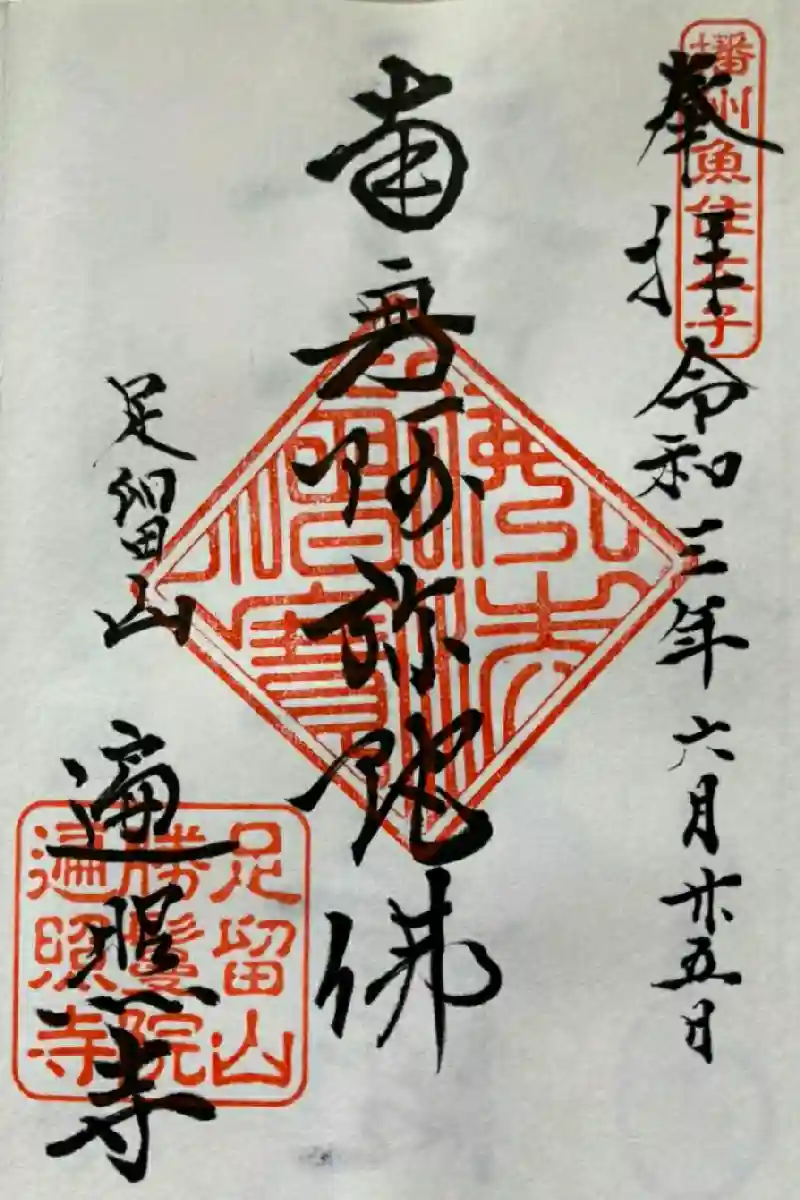 播州魚住太子
奉拝 令和三年六月廿五日
南無阿弥陀佛
佛法僧寶
足留山 遍照寺
足留山
勝鬘院
遍照寺